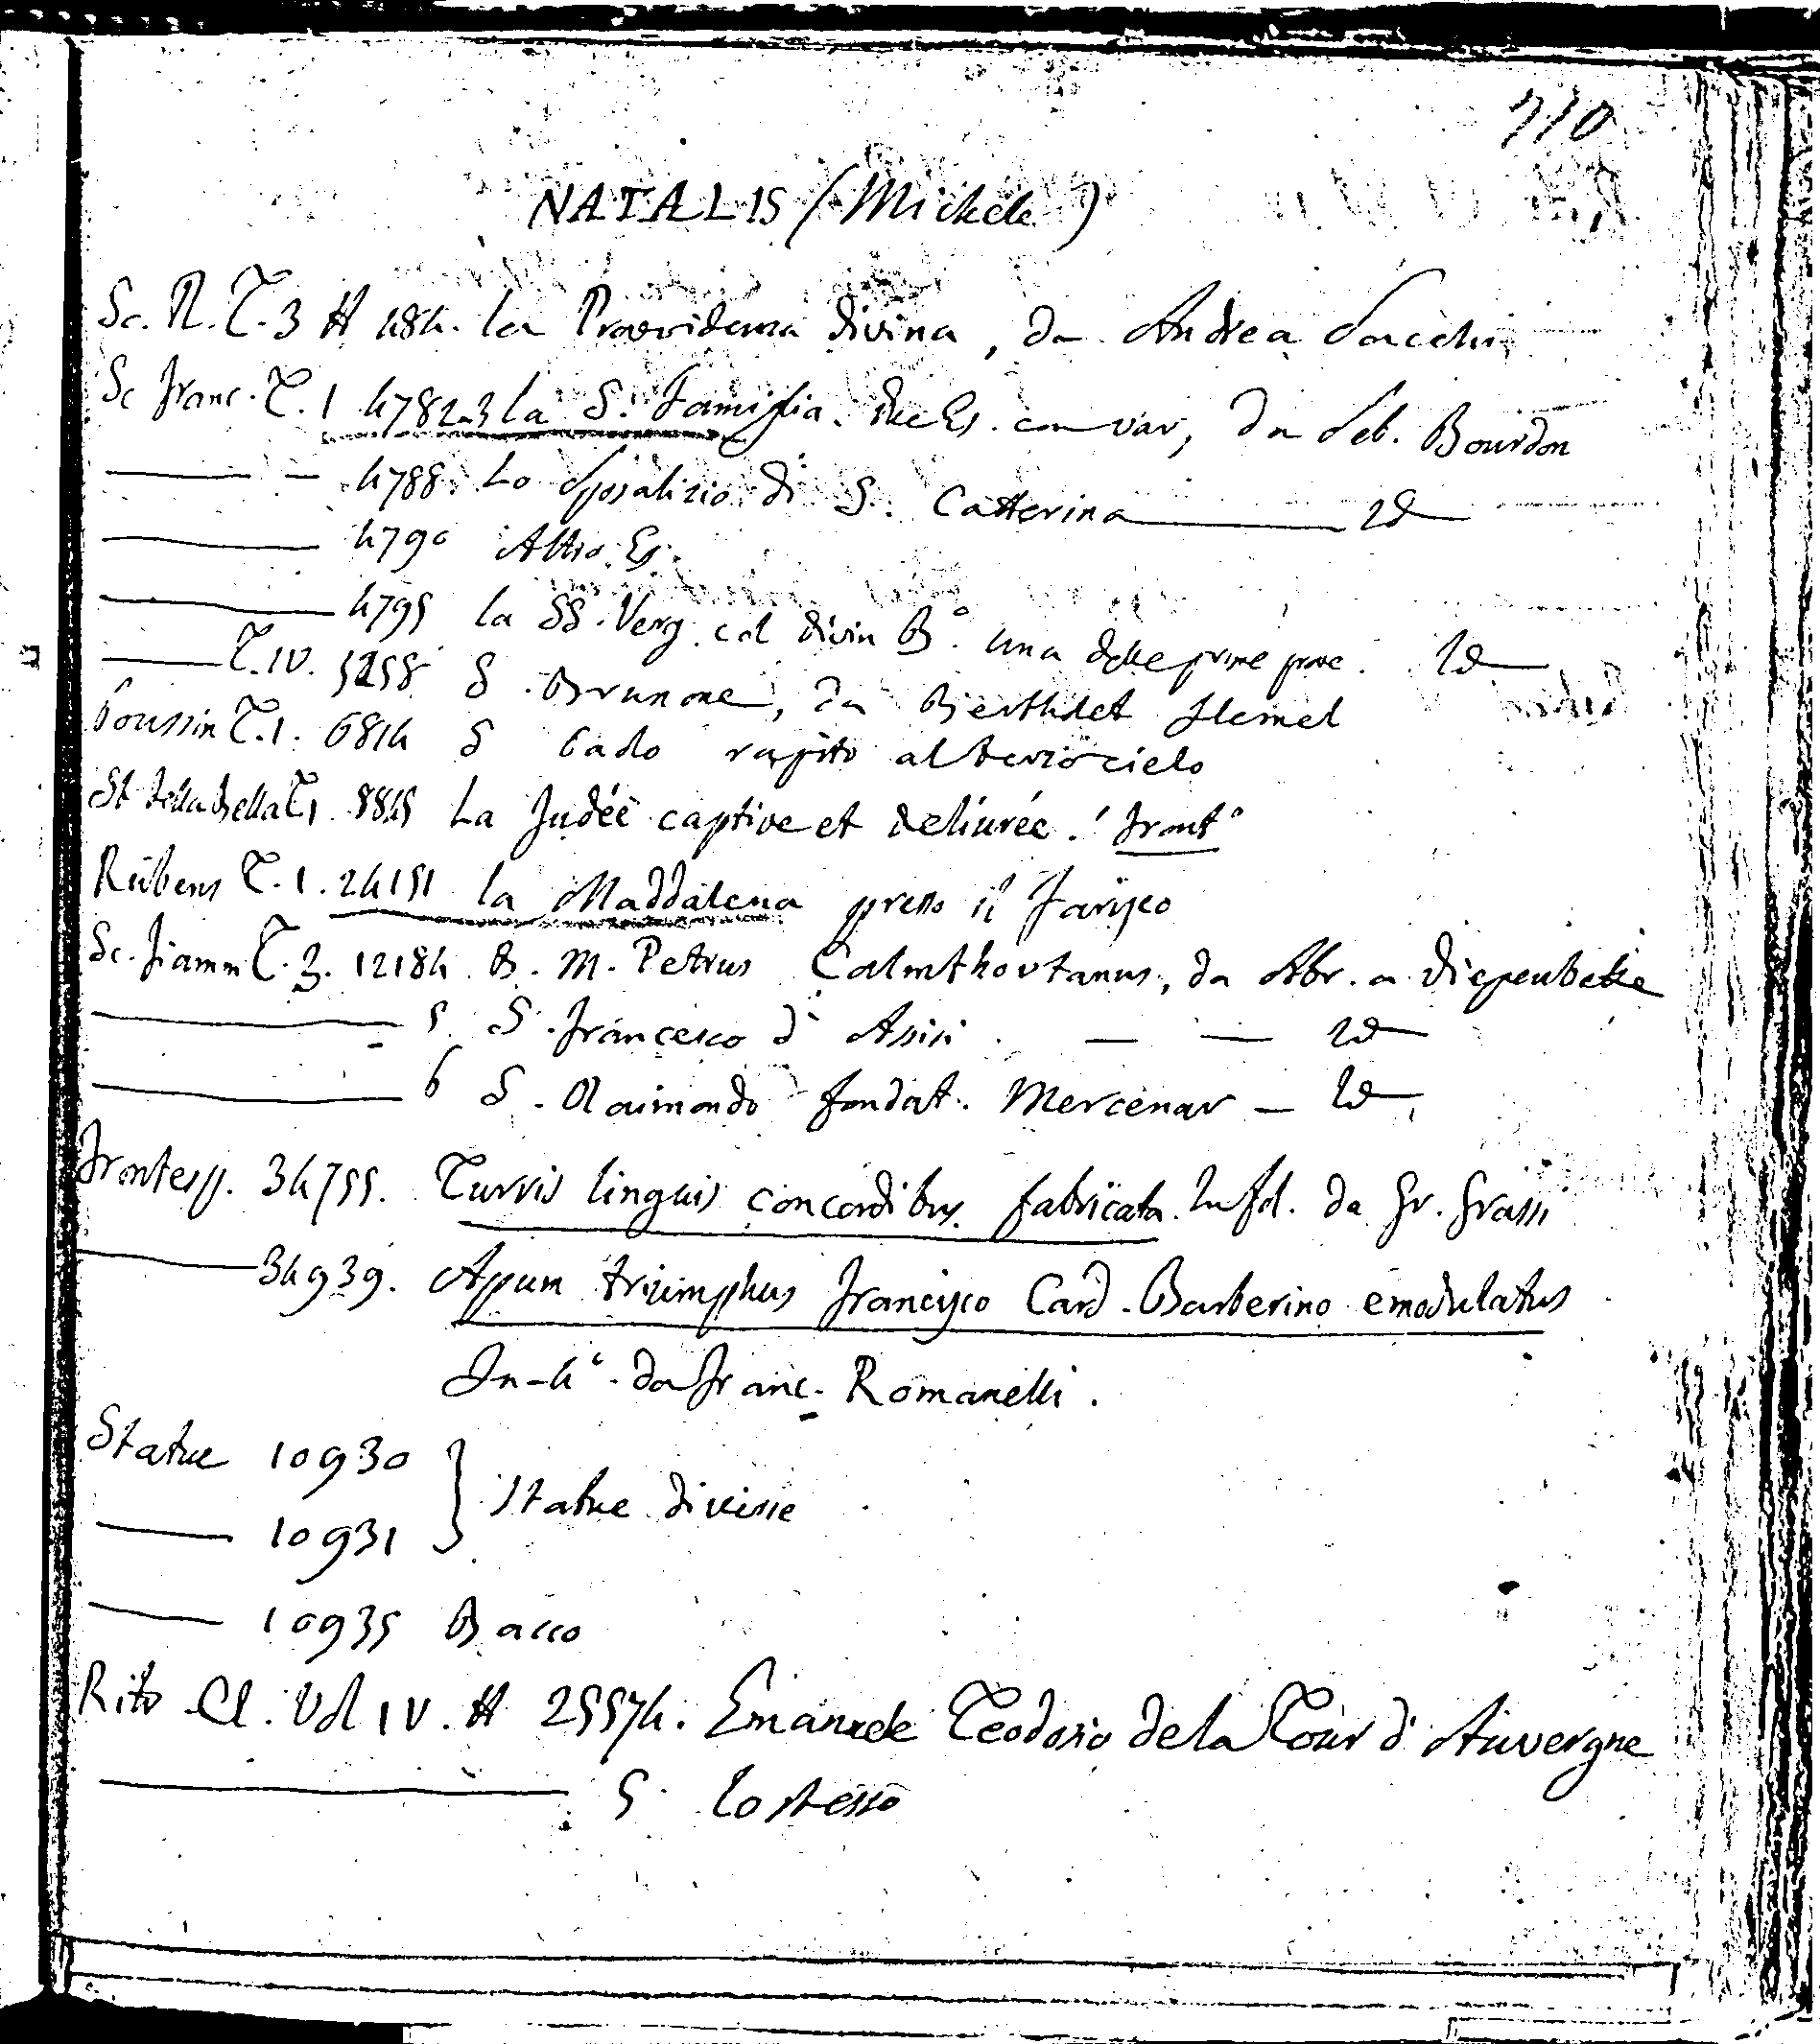 710
NATALIS (Michele)
Sc. R. T. 3 # 484. la Provvidenza divina, da Andrea Sacchi
Sc franc. T. 1 4782-3 la S. Famiglia. due Es. con var, da Seb. Bourdon
4788. Lo Sposalizio di S. Catterina — Id
4790 Altro Es.
4795 la SS. Verg. col divin B.º una delle prime prove. Id
T. IV. 5258 S. Brunone, da Berthdet Flemel
Poussin T. 1. 6814 S Paolo rapito al terzo cielo
St. della Bella T1. 8845 La Judée captive et delivrée. front.º
Rubens T. 1. 24151 la Maddalena presso il Fariseo
Sc. fiamm T. 3. 12184 B. M. Petrus Calmthovtanus, da Abr. a Diepenbeke
5 S. Francesco d'Assisi — — Id
6 S. Raimondo fondat. Mercenar — Id
Frontesp. 34755. Turris linguis concordibus fabricata. In fol. da Gr. Grassi
34939. Apum triumphus Francisco Card. Barberino emodulatus
In-4º. da Franc. Romanelli.
Statue 10930 } Statue diverse
10931
10935 Bacco
Ritr. Cl. Vol IV. # 25574. Emanuele Teodosio de la Tour d'Auvergne
5. Lo stesso